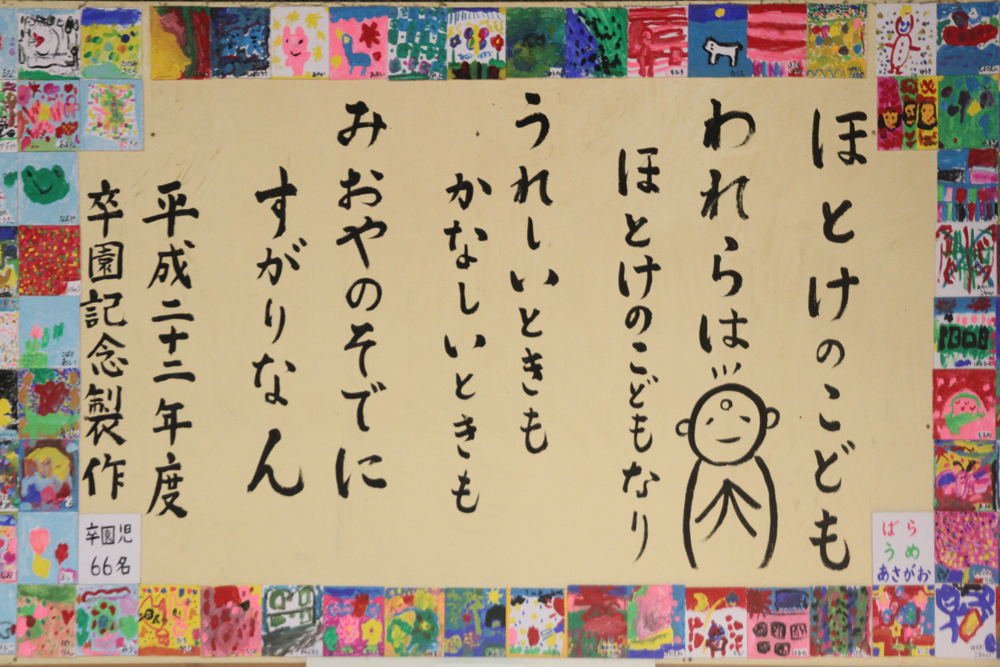 ほとけのこども
われらは
ほとけのこどもなり
うれしいときも
かなしいときも
みおやのそでに
すがりなん
平成二十二年度
卒園記念製作
卒園児
66名
ばら
うめ
あさがお